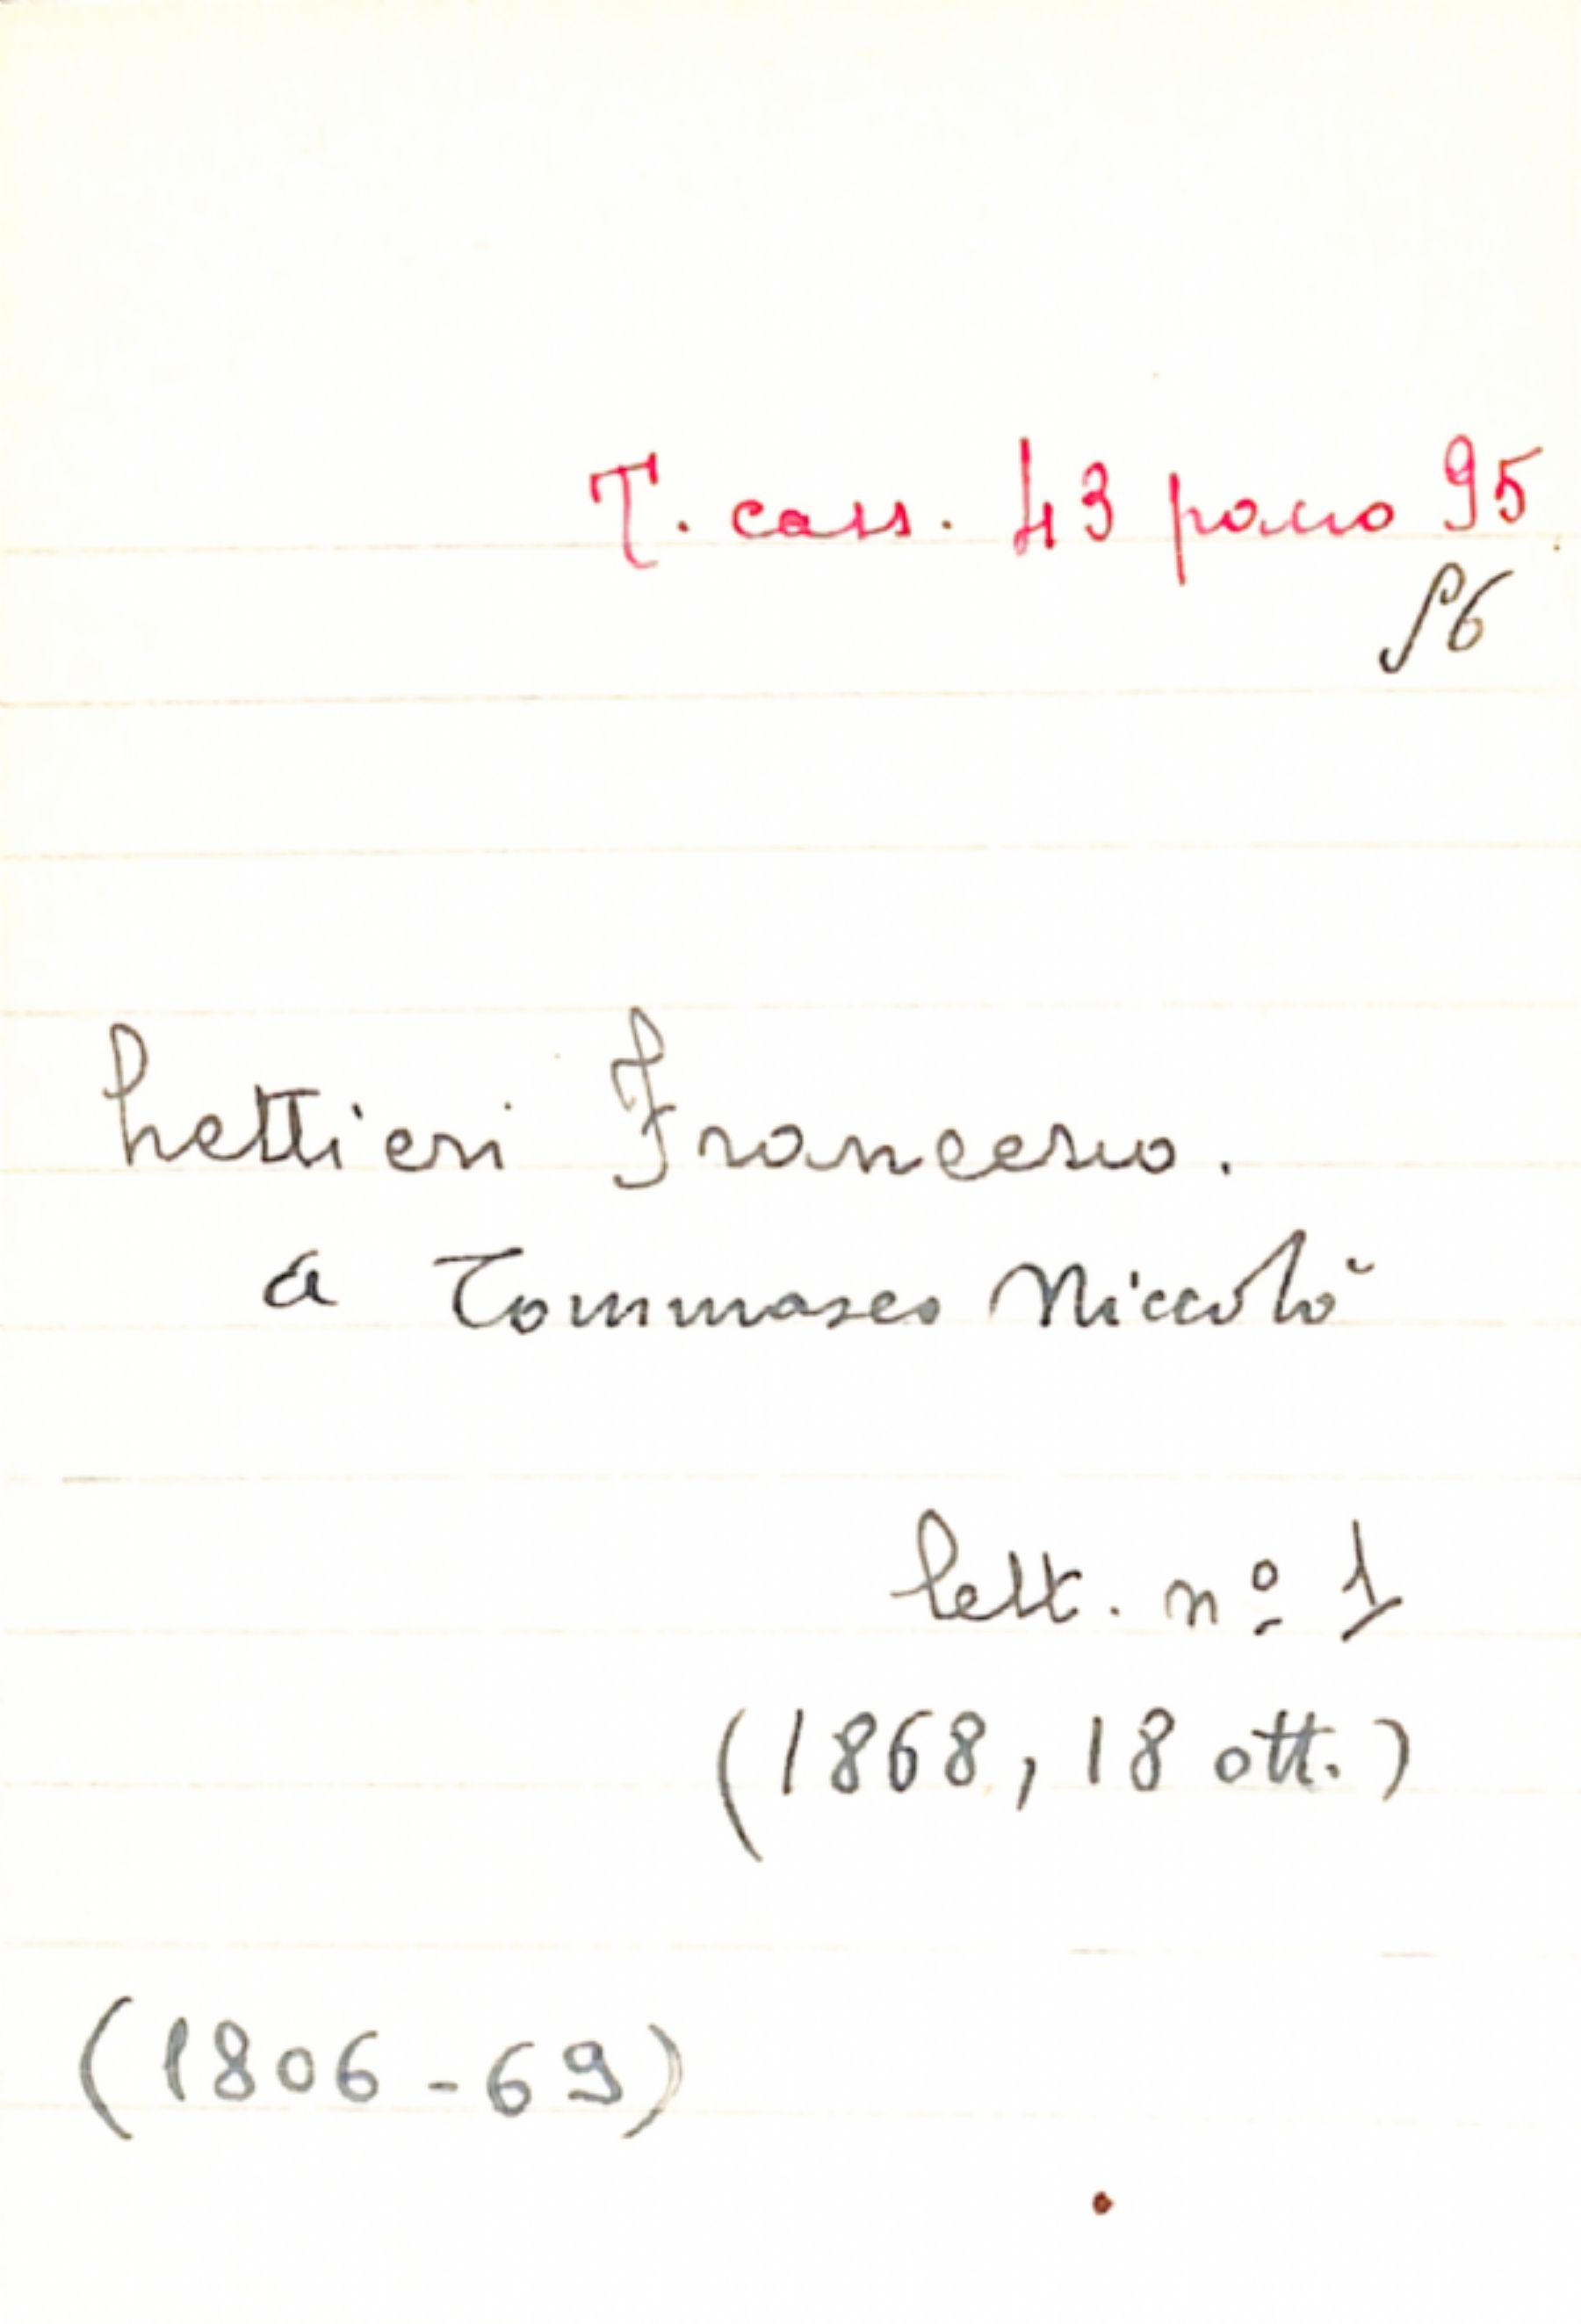 T. cass. 43 pacco 95
Lettieri Francesco.
a Tommaseo Niccolò
lett. nº 1
(1868, 18 ott.)
(1806-69)